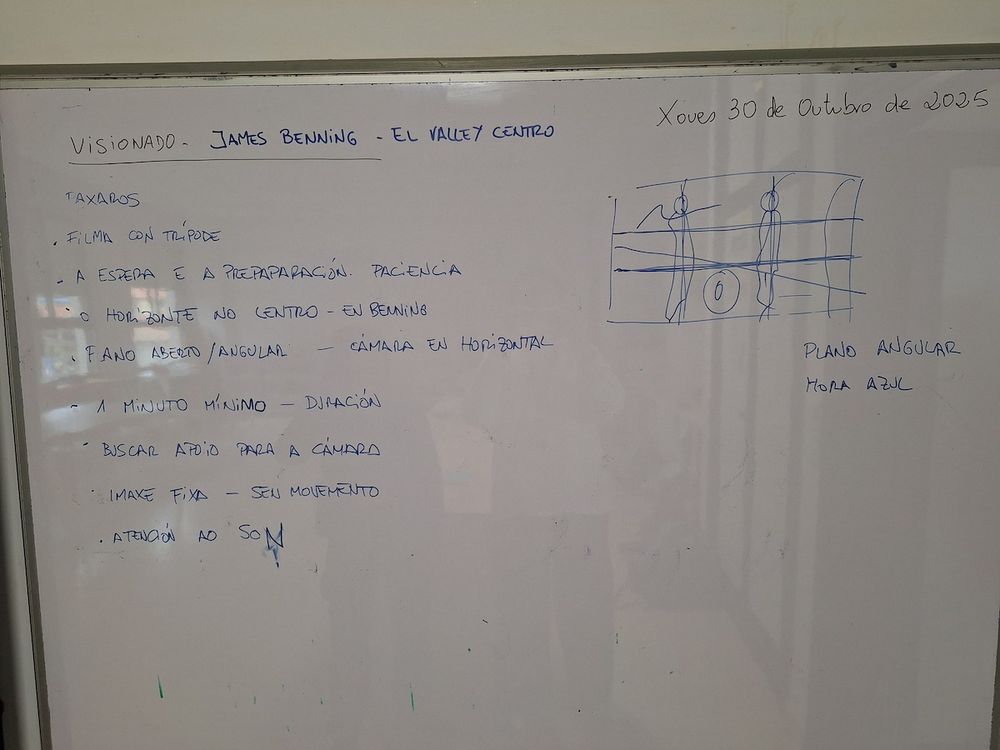 Xoves 30 de Outubro de 2025
VISIONADO - JAMES BENNING - EL VALLEY CENTRO
TAXAROS
. FILMA CON TRÍPODE
- A ESPERA E A PREPAPARACIÓN. PACIENCIA
· O HORIZONTE NO CENTRO - EN BENNING
. PANO ABERTO / ANGULAR — CÁMARA EN HORIZONTAL
- 1 MINUTO MÍNIMO — DURACIÓN
- BUSCAR APOIO PARA A CÁMARA
· IMAXE FIXA — SEN MOVEMENTO
. ATENCIÓN AO SON
PLANO ANGULAR
HORA AZUL